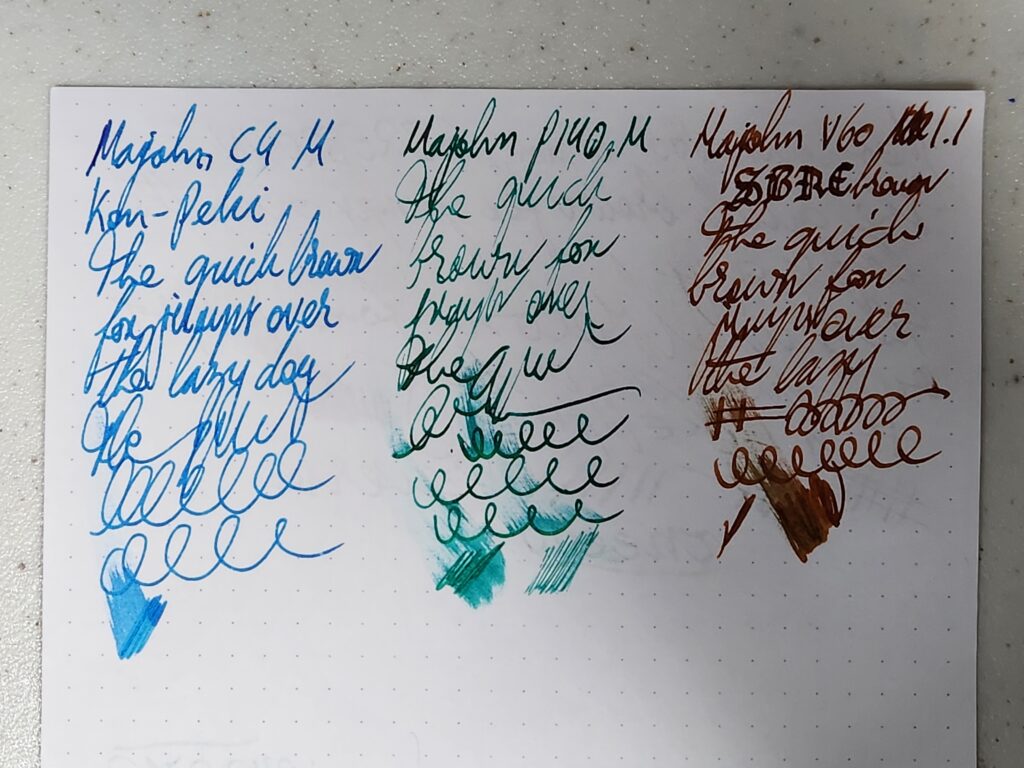 Majohn C4 M
Kon-Peki
The quick brown
fox jumps over
the lazy dog
The
Majohn P140 M
The quick
brown fox
jumps over
The qui
Majohn V60 1.1
SBRE brown
The quick
brown fox
jumps over
the lazy